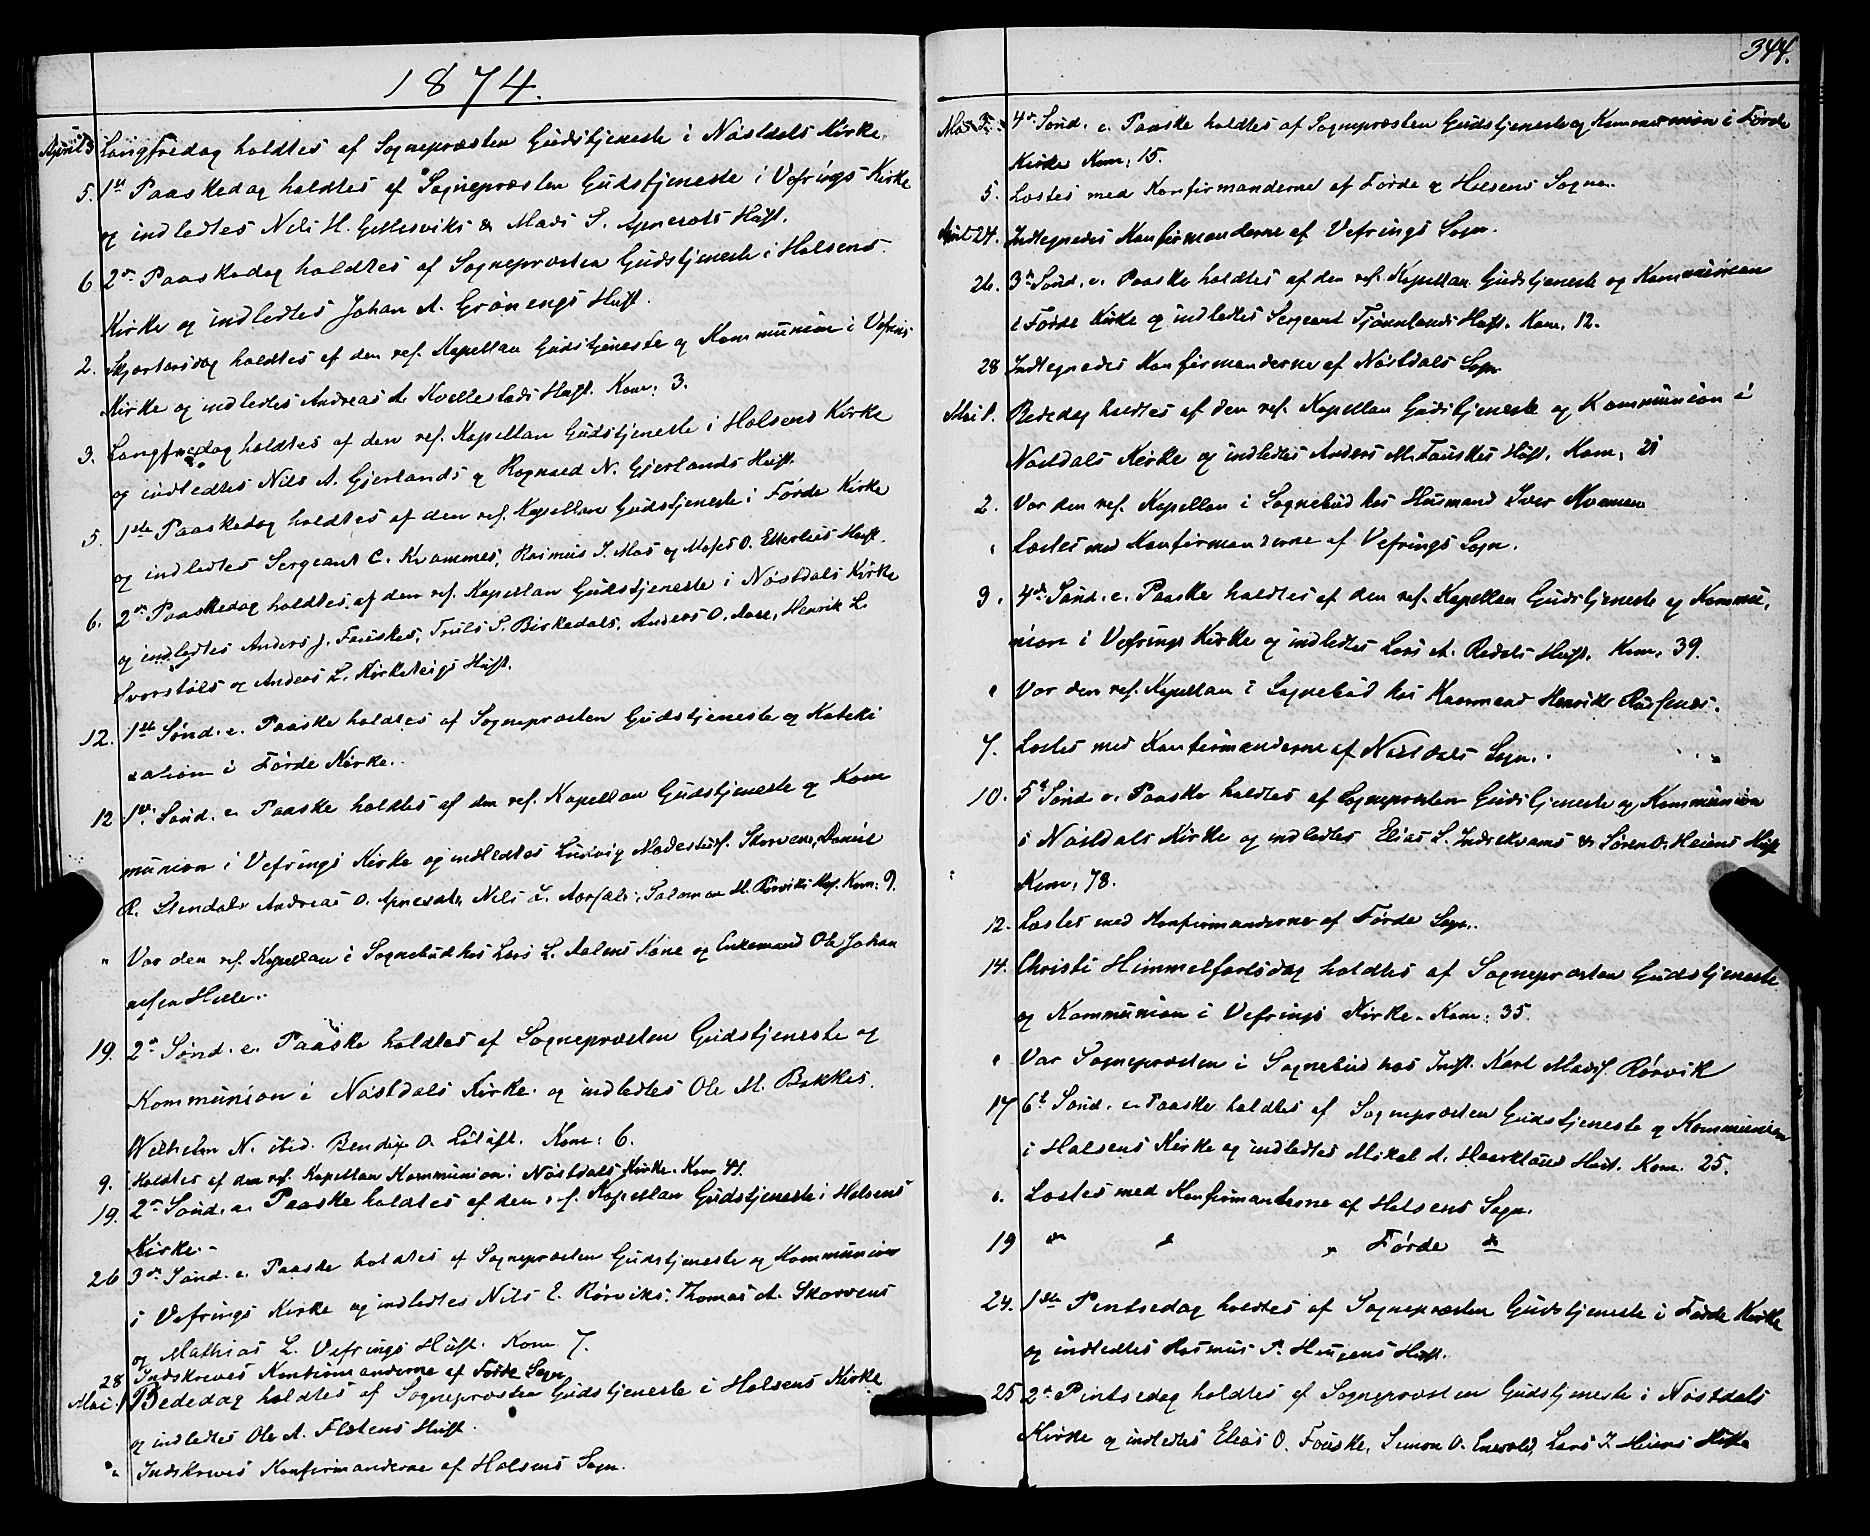 1874.
April 3 Langfredag holdtes af Sognepræsten Gudstjeneste i Nøstdals Kirke.
5. 1ste Paaskedag holdtes af Sognepræsten Gudstjeneste i Vefrings Kirke
og indledtes Nils H. Gillesviks & Mads S. Hust.
6 2den Paaskedag holdtes af Sognepræsten Gudstjeneste i Holsens
Kirke og indledtes Johan A. Grönengs Hust.
2. Skjærtorsdag holdtes af den res. Kapellan Gudstjeneste og Kommunion i Vefrings
Kirke og indledtes Andreas A. Kvellestads Hust. Kom: 3.
3. Langfredag holdtes af den res. Kapellan Gudstjeneste i Holsens Kirke
og indledtes Nils A. Gjerlands & Rognald N. Gjerlands Hust.
5. 1ste Paaskedag holdtes af den res. Kapellan Gudstjeneste i Førde Kirke
og indledtes Sergeant C. Kvammes, Rasmus J. Mos og Moses O. Hust.
6. 2den Paaskedag holdtes af den res. Kapellan Gudstjeneste i Nøstdals Kirke
og indledtes Anders J. Fouskes, Truls S. Birkedals, Anders O. Aase, Henrik L.
Svorstøls og Anders L. Kirketeigs Hust.
12. 1ste Sønd. e. Paaske holdtes af Sognepræsten Gudstjeneste og Kateki
sation i Førde Kirke.
12 1ste Sønd. e. Paaske holdtes af den res. Kapellan Gudstjeneste og Kom
munion i Vefrings Kirke og indledtes Ludvig Skorvene, Daniel
R. Stendals Andreas O. Nils L. Salomon M. Rørviks Hus. Kom: 9.
" Var den res. Kapellan i Sognebud hos Lars L. Aalens Kone og Enkemand Ole Johan
nesen Helle.
19. 2den Sønd. e. Paaske holdtes af Sognepræsten Gudstjeneste og
Kommunion i Nøstdals Kirke og indledtes Ole M. Bakkes.
Wilhelm N. ibid. Bendix O. Kom: 6.
9. Holdtes af den res. Kapellan Kommunion i Nøstdals Kirke. Kom 41.
19. 2den Sønd. e. Paaske holdtes af den res. Kapellan Gudstjeneste i Holsens
Kirke.
26 3die Sønd. e. Paaske holdtes af Sognepræsten Gudstjeneste og Kommunion
i Vefrings Kirke og indledtes Nils E. Rørviks, Thomas A. Skorvens
og Mathias L. Vefrings Hust. Kom 7.
28 Indskreves Konfirmanderne af Førde Sogn
Mai 1 Bededag holdtes af Sognepræsten Gudstjeneste i Holsens Kirke
og indledtes Ole A. Flatens Hust.
" Indskreves Konfirmanderne af Holsens Sogn.
344.
Mai 3. 4de Sønd. e. Paaske holdtes af Sognepræsten Gudstjeneste og Kommunion i Førde
Kirke Kom: 15.
5. Læstes med Konfirmanderne af Førde & Holsens Sogne.
April 24. Indtegnedes Konfirmanderne af Vefrings Sogn.
26. 3die Sønd. e. Paaske holdtes af den res. Kapellan Gudstjeneste og Kommunion
i Førde Kirke og indledtes Sergeant Tjønnlands Hust. Kom. 12.
28 Indtegnedes Konfirmanderne af Nøstdals Sogn
Mai 1. Bededag holdtes af den res. Kapellan Gudstjeneste og Kommunion i
Nøstdals Kirke og indledtes Anders M. Fouskes Hust. Kom: 21
2. Var den res. Kapellan i Sognebud hos Husmand Iver
" Læstes med Konfirmanderne af Vefrings Sogn.
3. 4de Sønd. e. Paaske holdtes af den res. Kapellan Gudstjeneste og Kommu,
nion i Vefrings Kirke og indledtes Lars A. Redals Hust. Kom. 39.
" Var den res. Kapellan i Sognebud hos Henrik
7. Læstes med Konfirmanderne af Nøstdals Sogn.
10. 5te Sønd. e. Paaske holdtes af Sognepræsten Gudstjeneste og Kommunion
i Nøstdals Kirke og indledtes Elias L. Indrekvams & Søren O. Heiens Hust
Kom: 78.
12. Læstes med Konfirmanderne af Førde Sogn.
14. Christi Himmelfartsdag holdtes af Sognepræsten Gudstjeneste
og Kommunion i Vefrings Kirke. Kom: 35.
" Var Sognepræsten i Sognebud hos Inst. Karl Madss. Rørvik
17 6te Sønd. e. Paaske holdtes af Sognepræsten Gudstjeneste og Kommunion
i Holsens Kirke og indledtes Mikal A. Haarklaus Hust. Kom. 25.
". Læstes med Konfirmanterne af Holsens Sogn.
19 do do " Førde do
24. 1ste Pintsedag holdtes af Sognepræsten Gudstjeneste i Førde Kirke
og indledtes Rasmus P. Haugens Hust.
25 2den Pintsedag holdtes af Sognepræsten Gudstjeneste i Nøstdals
Kirke og indledtes Elias O. Fouske, Simon O. Lars J. Heiens Hust.